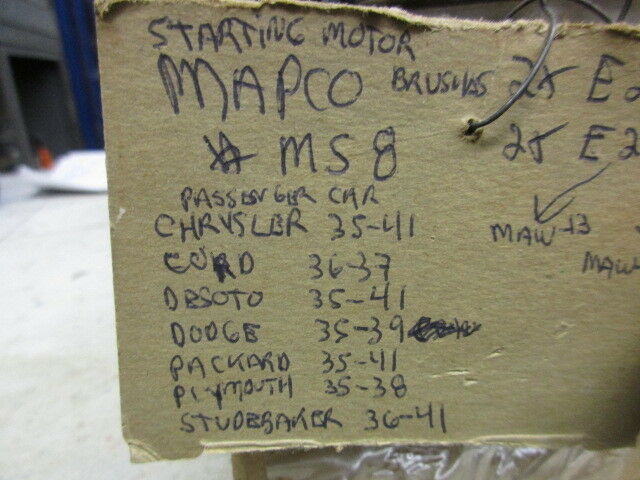 STARTING MOTOR
MAPCO BRUSHES 25 E2
MS8 25 E2
PASSENGER CAR
CHRYSLER 35-41 MAW-13
CORD 36-37 MAW
DESOTO 35-41
DODGE 35-39
PACKARD 35-41
PLYMOUTH 35-38
STUDEBAKER 36-41